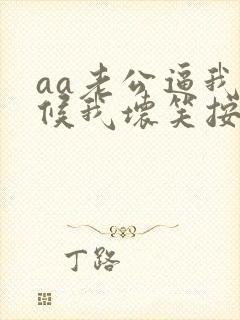 aa老公逼我
候我坏笑按
丁路